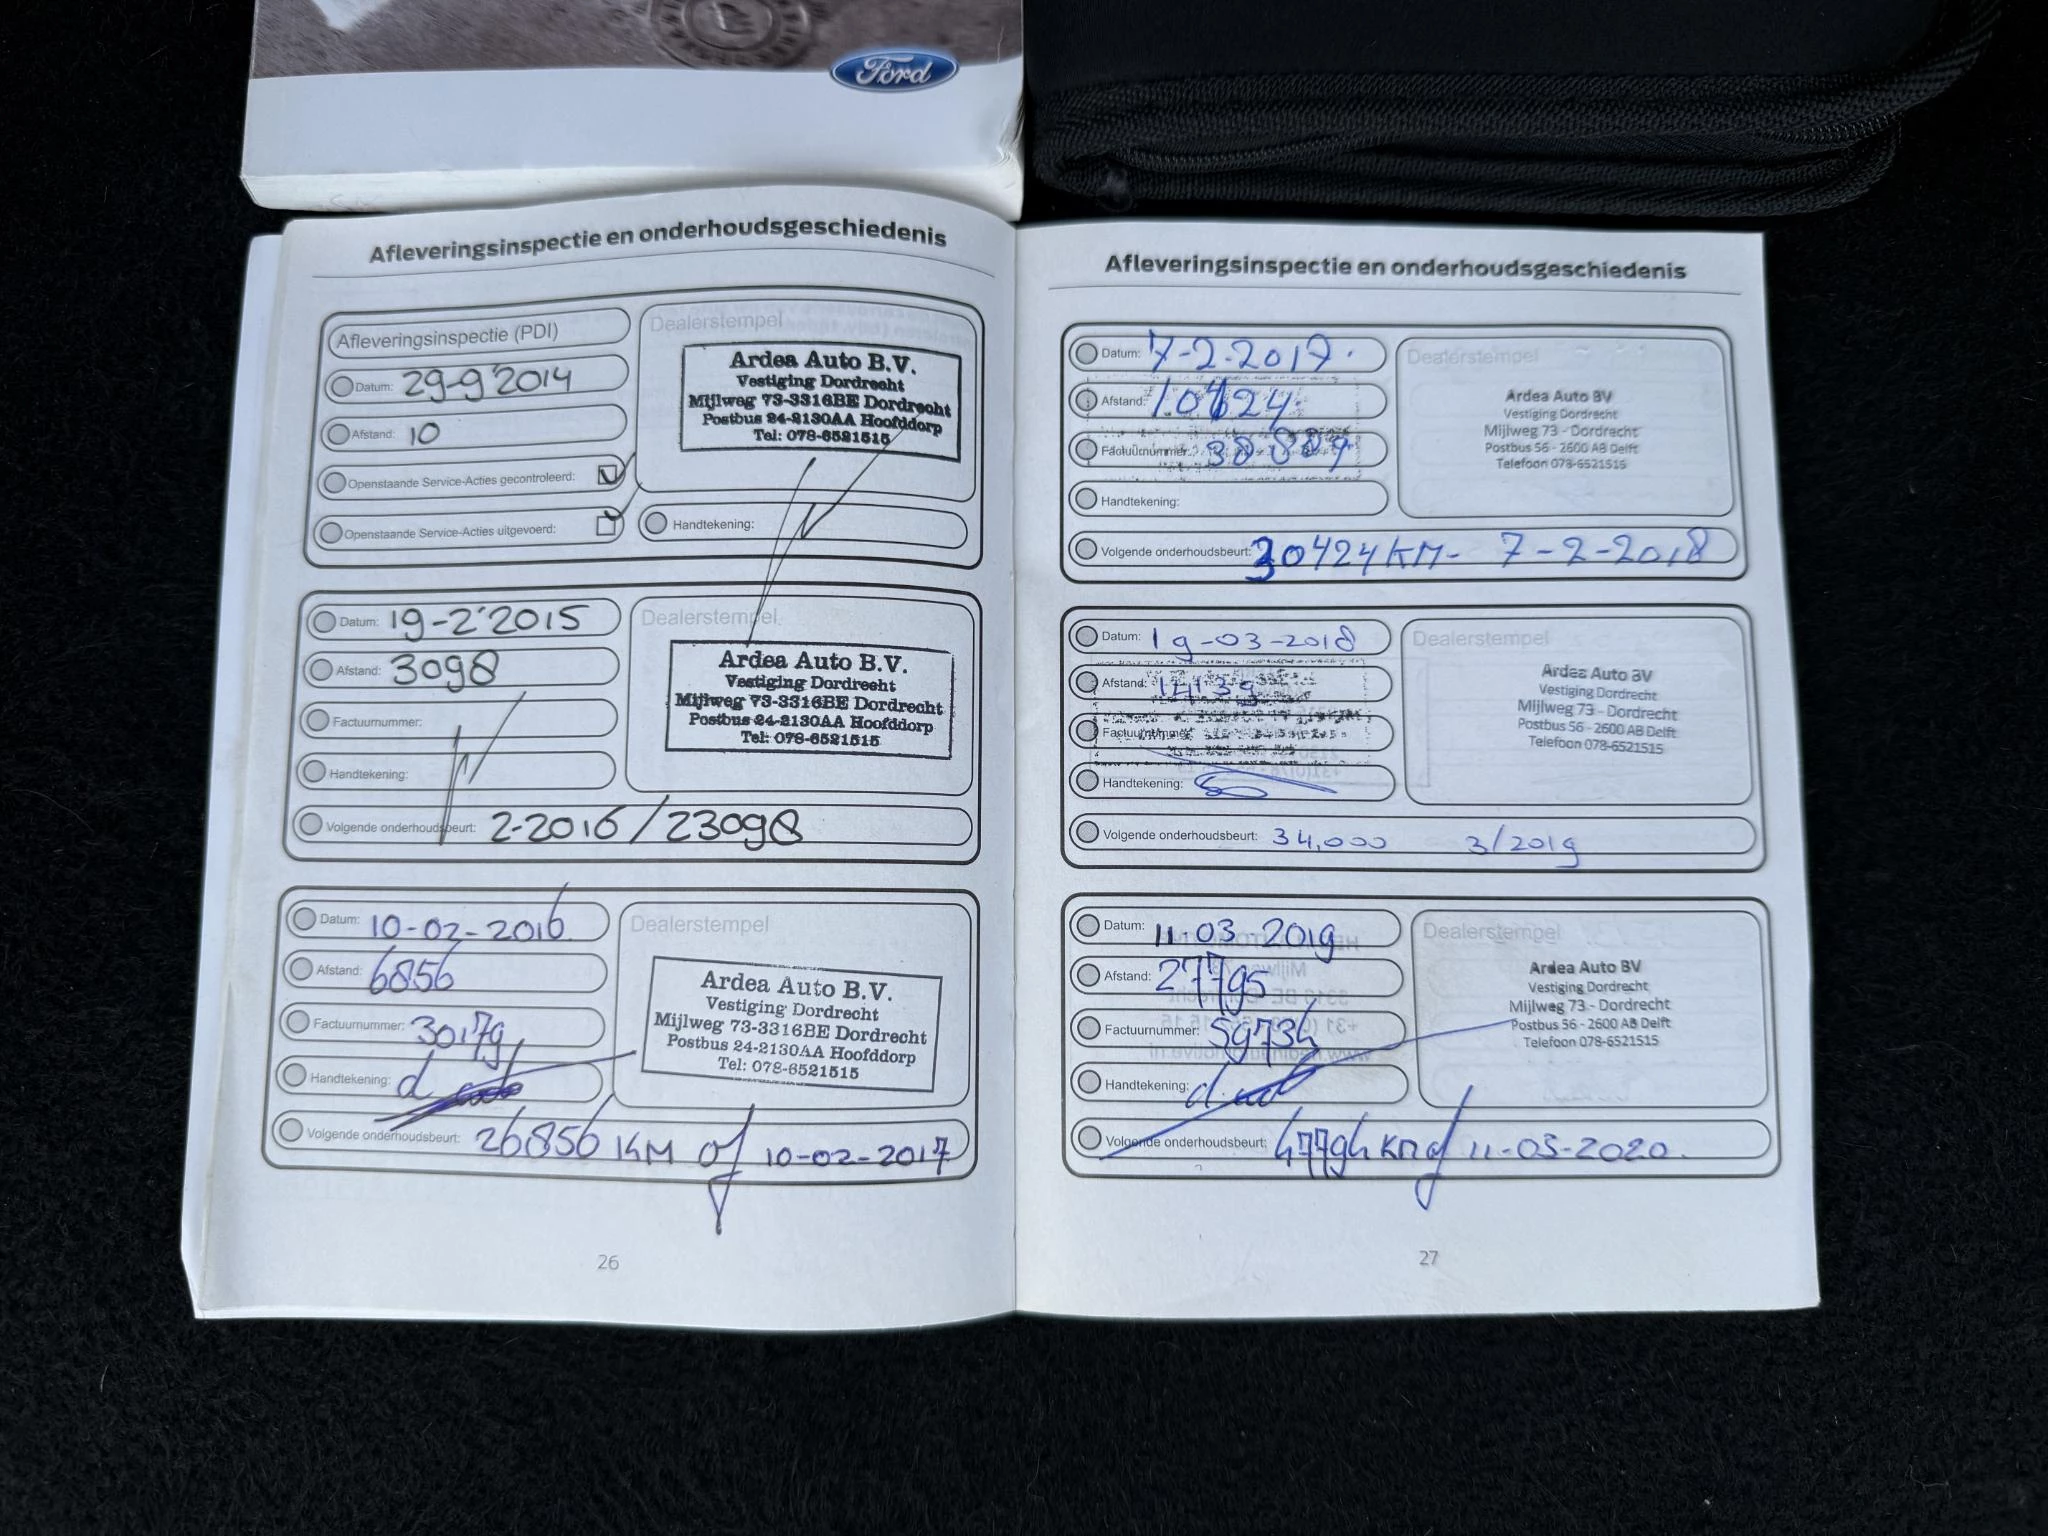 Ford
Afleveringsinspectie en onderhoudsgeschiedenis
Afleveringsinspectie (PDI)
Datum: 29-9'2014
Afstand: 10
Openstaande Service-Acties gecontroleerd:
Openstaande Service-Acties uitgevoerd:
Dealerstempel
Ardea Auto B.V.
Vestiging Dordrecht
Mijlweg 73-3316BE Dordrecht
Postbus 24-2130AA Hoofddorp
Tel: 078-6521515
Handtekening:
Datum: 19-2'2015
Afstand: 3098
Factuurnummer:
Handtekening:
Dealerstempel
Ardea Auto B.V.
Vestiging Dordrecht
Mijlweg 73-3316BE Dordrecht
Postbus 24-2130AA Hoofddorp
Tel: 078-6521515
Volgende onderhoudsbeurt: 2-2016/23098
Datum: 10-02-2016
Afstand: 6856
Factuurnummer: 30179
Handtekening:
Dealerstempel
Ardea Auto B.V.
Vestiging Dordrecht
Mijlweg 73-3316BE Dordrecht
Postbus 24-2130AA Hoofddorp
Tel: 078-6521515
Volgende onderhoudsbeurt: 26856 KM of 10-02-2017
26
Afleveringsinspectie en onderhoudsgeschiedenis
Datum: 7-2-2017.
Afstand: 10424
Factuurnummer: 38889
Handtekening:
Dealerstempel
Ardea Auto BV
Vestiging Dordrecht
Mijlweg 73 - Dordrecht
Postbus 56 - 2600 AB Delft
Telefoon 078-6521515
Volgende onderhoudsbeurt: 30424 KM- 7-2-2018
Datum: 19-03-2018
Afstand: 14139
Factuurnummer:
Handtekening:
Dealerstempel
Ardea Auto BV
Vestiging Dordrecht
Mijlweg 73 - Dordrecht
Postbus 56 - 2600 AB Delft
Telefoon 078-6521515
Volgende onderhoudsbeurt: 34,000 3/2019
Datum: 11-03-2019
Afstand: 27795
Factuurnummer: 59734
Handtekening:
Dealerstempel
Ardea Auto BV
Vestiging Dordrecht
Mijlweg 73 - Dordrecht
Postbus 56 - 2600 AB Delft
Telefoon 078-6521515
Volgende onderhoudsbeurt: 47794 KM of 11-03-2020.
27